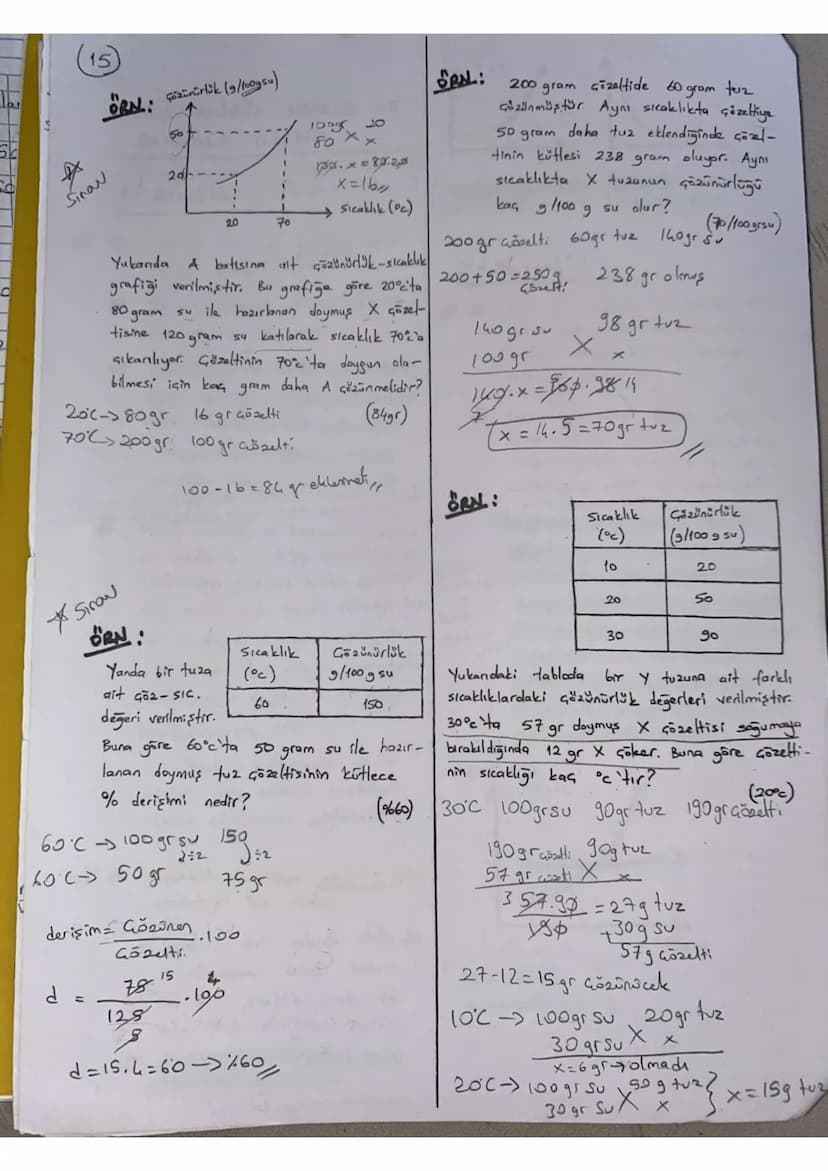 15
ÖRN:
Çözünürlük (g/100g su)
50
20
20
70
Sıcaklık (°C)
100gr 20
80 x
100.x=80.20
x=16
Sınav
Yukarıda A batısına ait çözünürlük-sıcaklık
grafiği verilmiştir. Bu grafiğe göre 20°C'ta
80 gram su ile hazırlanan doymuş X çözel-
tisine 120 gram su katılarak sıcaklık 70°C'a
çıkarılıyor. Çözeltinin 70°C'ta doygun ola-
bilmesi için kaç gram daha A çözünmelidir?
(84gr)
20°C → 80gr 16 gr çözelti
70°C → 200gr 100gr çözelti
100-16=84 gr eklenmeli
Sınav
ÖRN:
Yanda bir tuza
ait çöz-sıc.
değeri verilmiştir.
Sıcaklık (°C)
Çözünürlük g/100g su
60
150
Buna göre 60°C'ta 50 gram su ile hazır-
lanan doymuş tuz çözeltisinin kütlece
% derişimi nedir?
(%60)
60°C → 100gr su 150
÷2 ÷2
60°C → 50gr 75gr
derişim = Çözünen / Çözelti .100
d = 75 15 / 125 5 .100 4
d=15.4=60 → %60
ÖRN:
200 gram çözeltide 60 gram tuz
çözünmüştür. Aynı sıcaklıkta çözeltiye
50 gram daha tuz eklendiğinde çözel-
tinin kütlesi 238 gram oluyor. Aynı
sıcaklıkta X tuzunun çözünürlüğü
kaç g/100 g su olur?
(70/100grsu)
200gr çözelti 60gr tuz 140gr su
200+50=250g çözelti 238 gr olmuş
140gr su 98gr tuz
100gr x
140.x=100.98 14
7
x=14.5=70gr tuz
ÖRN:
Sıcaklık (°C)
Çözünürlük (g/100 g su)
10 20
20 50
30 90
Yukarıdaki tabloda bir Y tuzuna ait farklı
sıcaklıklardaki çözünürlük değerleri verilmiştir.
30°C'ta 57 gr doymuş X çözeltisi soğumaya
bırakıldığında 12 gr X çöker. Buna göre çözelti-
nin sıcaklığı kaç °C'tır?
(20°C)
30°C 100grsu 90gr tuz 190gr çözelti
190gr çözelti 90g tuz
57gr çözelti x
3 57.90 / 190 = 27g tuz
+30g su
57g çözelti
27-12=15gr çözünecek
10°C → 100gr su 20gr tuz
30gr su x
x=6gr → olmadı
20°C → 100gr su 50g tuz
30gr su x } x=15g tuz